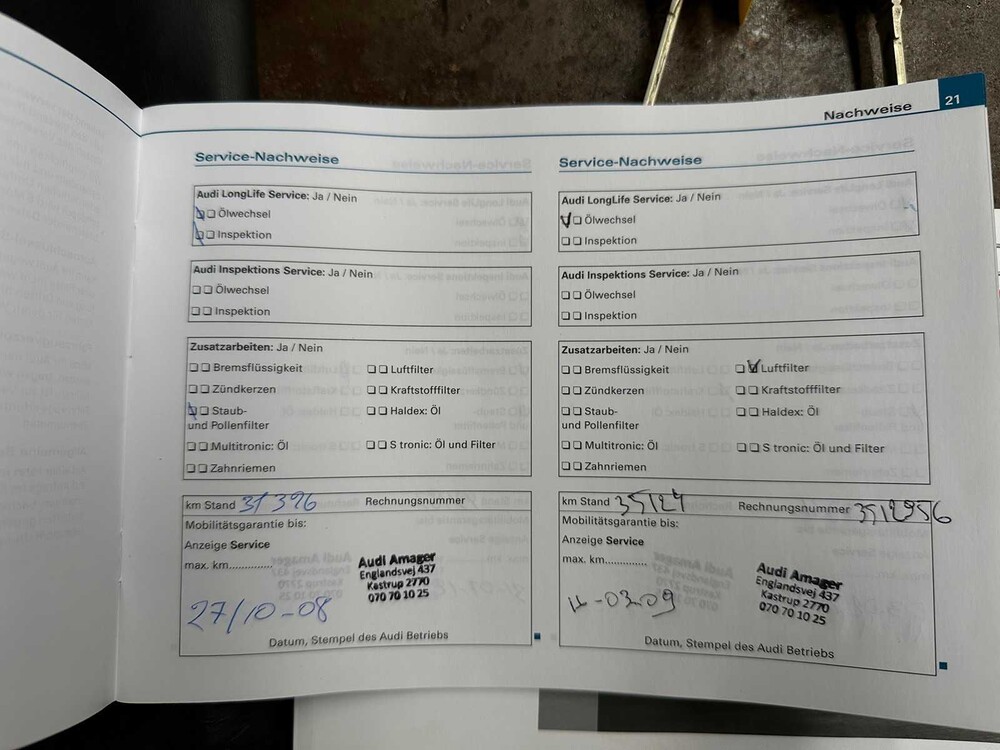 Nachweise 21
Service-Nachweise
Audi LongLife Service: Ja / Nein
Ölwechsel
Inspektion
Audi Inspektions Service: Ja / Nein
Ölwechsel
Inspektion
Zusatzarbeiten: Ja / Nein
Bremsflüssigkeit
Luftfilter
Zündkerzen
Kraftstofffilter
Staub-
und Pollenfilter
Haldex: Öl
Multitronic: Öl
S tronic: Öl und Filter
Zahnriemen
km Stand 31396 Rechnungsnummer
Mobilitätsgarantie bis:
Anzeige Service
max. km..............
Audi Amager
Englandsvej 437
Kastrup 2770
070 70 10 25
27/10-08
Datum, Stempel des Audi Betriebs
Service-Nachweise
Audi LongLife Service: Ja / Nein
Ölwechsel
Inspektion
Audi Inspektions Service: Ja / Nein
Ölwechsel
Inspektion
Zusatzarbeiten: Ja / Nein
Bremsflüssigkeit
Luftfilter
Zündkerzen
Kraftstofffilter
Staub-
und Pollenfilter
Haldex: Öl
Multitronic: Öl
S tronic: Öl und Filter
Zahnriemen
km Stand 35124 Rechnungsnummer 3512956
Mobilitätsgarantie bis:
Anzeige Service
max. km.............
Audi Amager
Englandsvej 437
Kastrup 2770
070 70 10 25
Datum, Stempel des Audi Betriebs